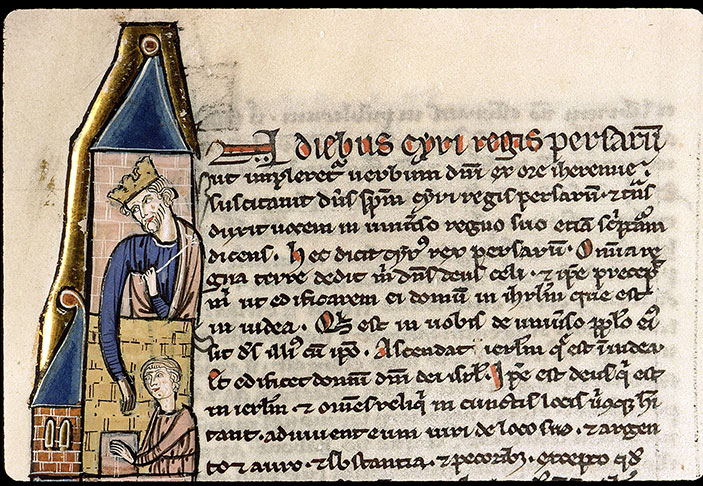 A diebus cyri regis persarũ
ut impleret᷑ uerbum dnĩ ex ore iheremie
suscitauit dñs spm̃ cyri regis persarum · ⁊
duxit uocem in uniũso regno suo etiã scͥptam
dicens · hec dicit cyrꝰ rex persarum · Omnia re
gna terre dedit m̃ dñs deus celi · ⁊ ipse precep
m̃ ut edificarem ei domum in ihrlm̃ que est
in iudea · Qͥs est in uobis de uniũso ppl̃o eiꝰ
sit ds̃ illiꝰ cũ ipõ · Ascendat ierlm̃ q̃ est ĩ iudea
Et edificet domum dnĩ dei isrl̃ · Ipse est deus q̃ est
in ierlm̃ ⁊ om̃es reliq̃ in cunctis locis hĩ
tant · adiuuent eum uiri de loco suo · ⁊ argen
to ⁊ auro · ⁊ sb̃stantia · ⁊ pecoribꝫ · excepto qd̃